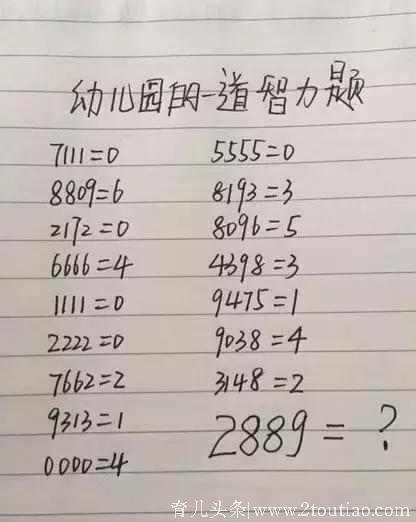 幼儿园的一道智力题
7111=0 5555=0
8809=6 8193=3
2172=0 8096=5
6666=4 4398=3
1111=0 9475=1
2222=0 9038=4
7662=2 3148=2
9313=1 2889=?
0000=4
育儿头条|www.2toutiao.com